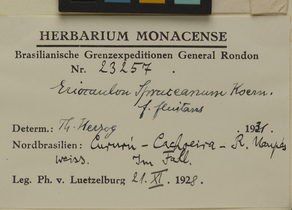 HERBARIUM MONACENSE
Brasilianische Grenzexpeditionen General Rondon
Nr. 23257.
Eriocaulon Spruceanum Koern.
f. fluitans
Determ.: Th. Herzog 1931.
Nordbrasilien: Cururú - Cachoeira - R. Uaupés
weiss. Im Fall.
Leg. Ph. v. Luetzelburg 21. XI. 1928.